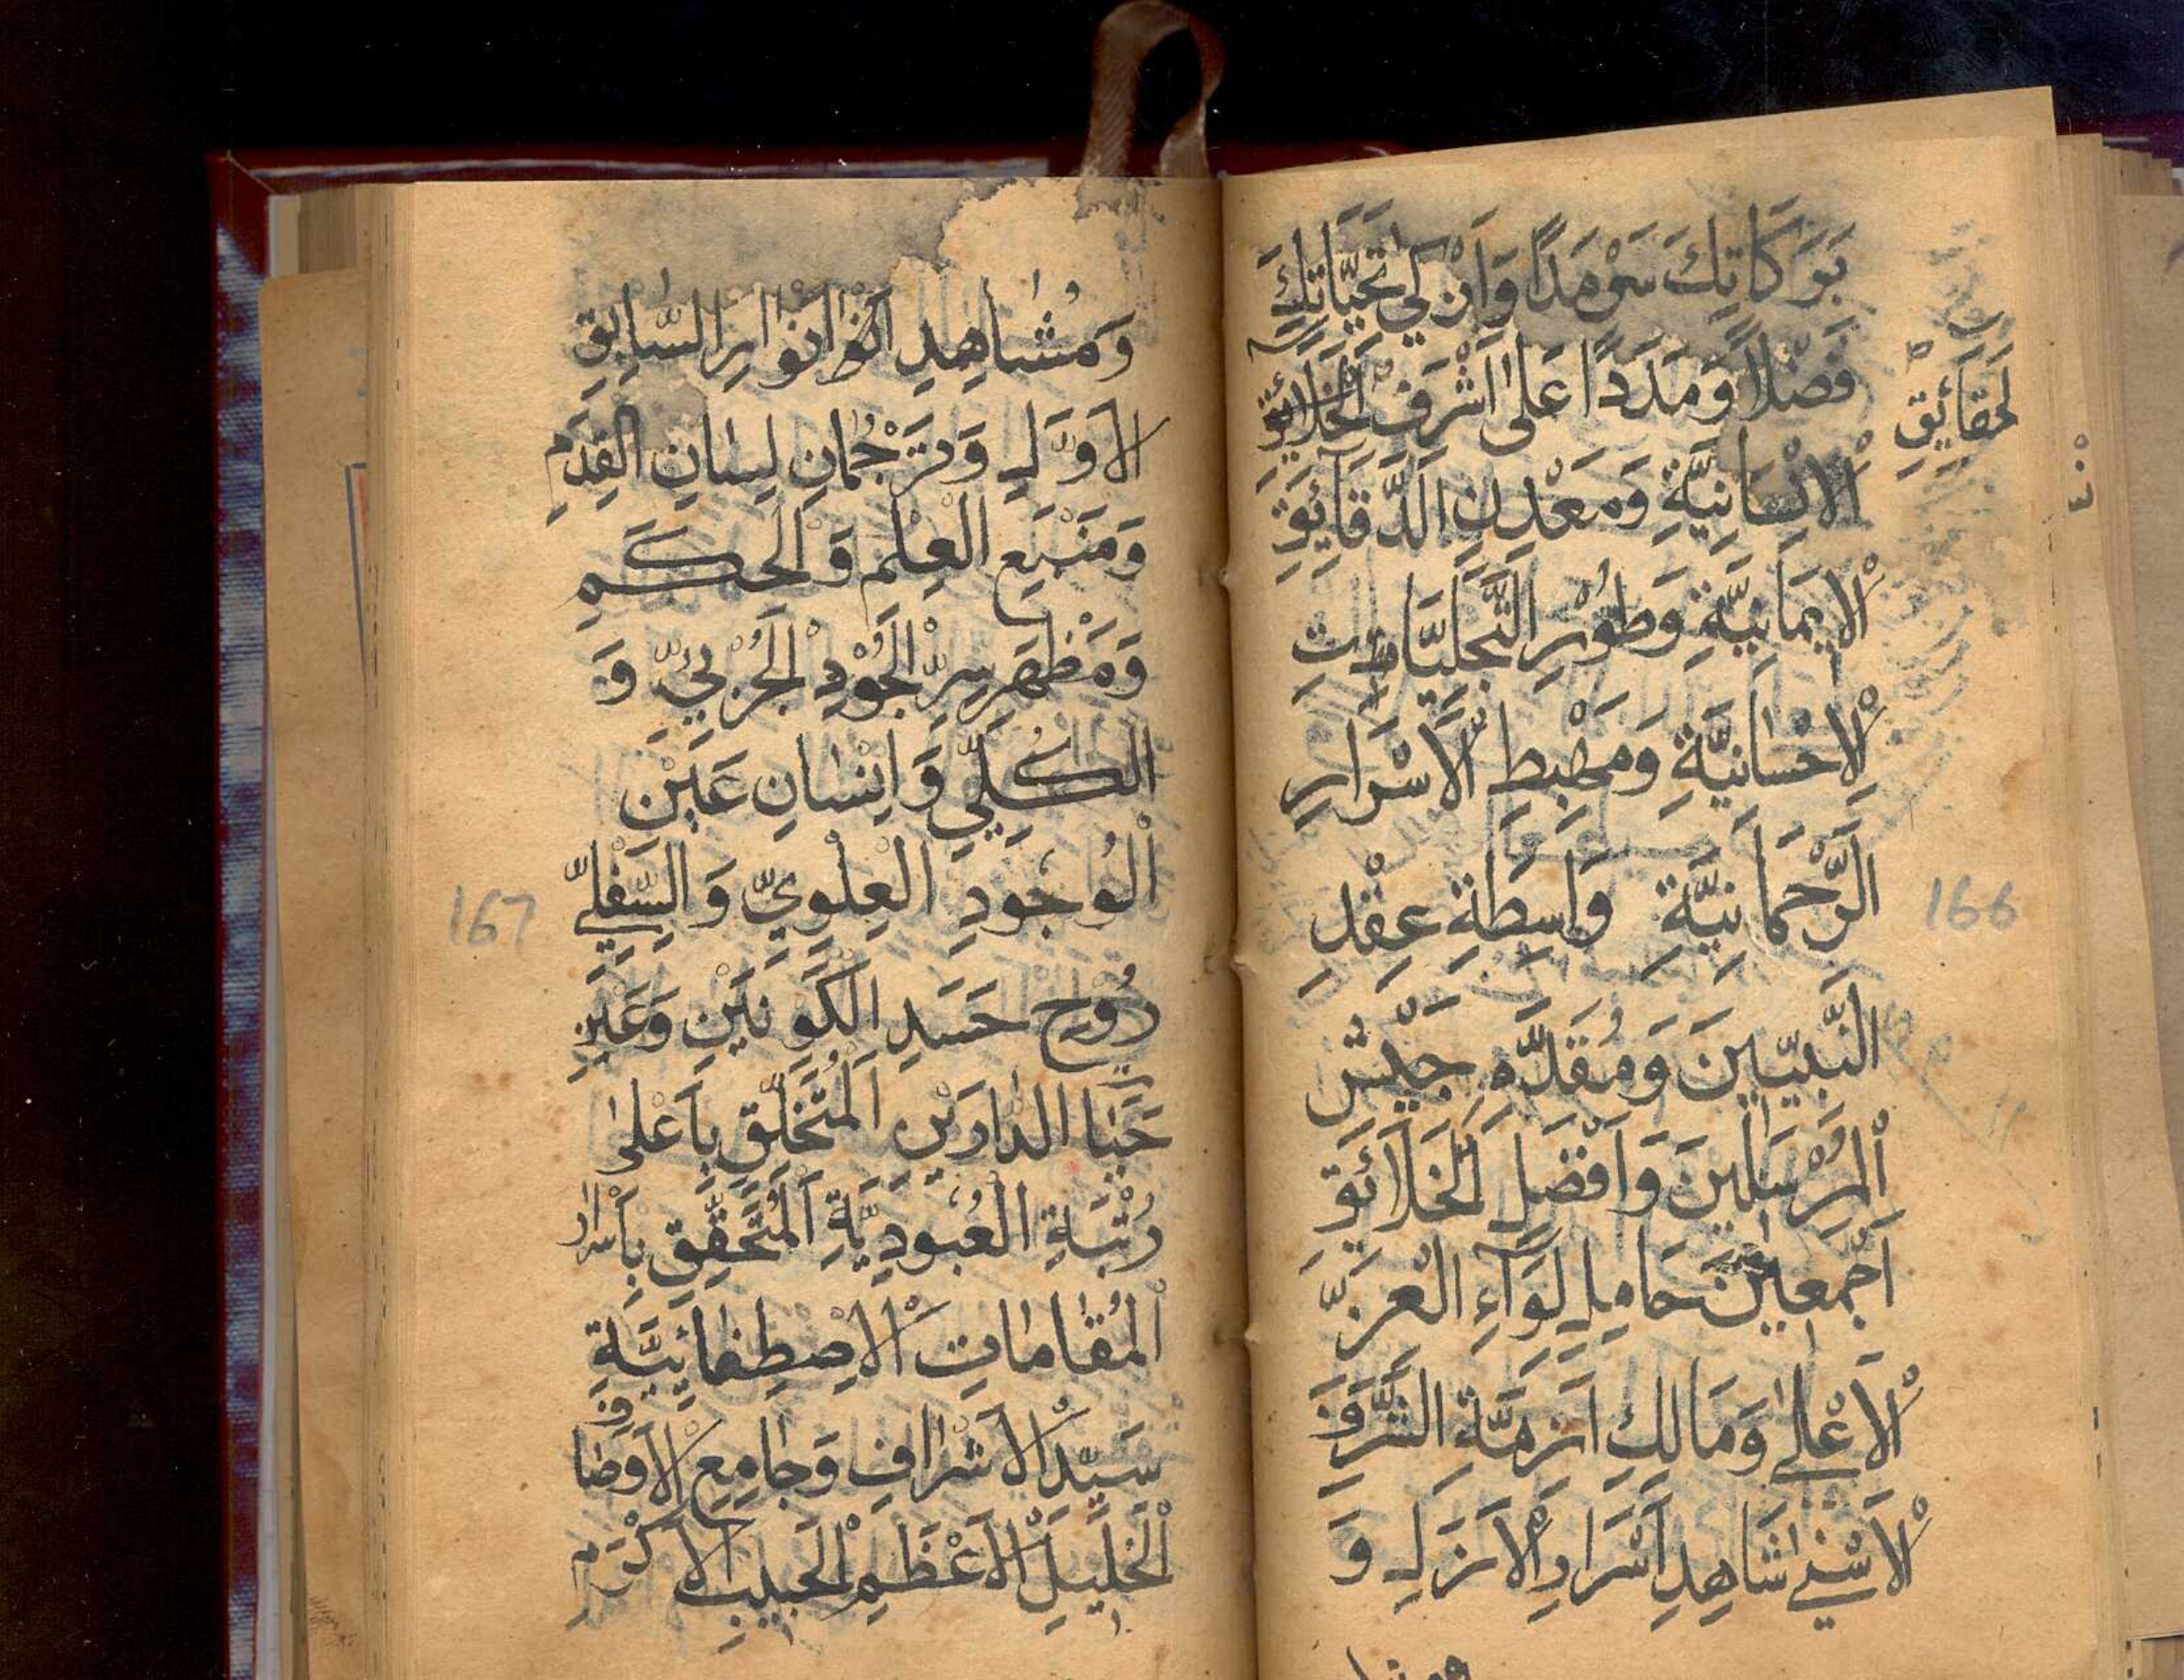 بَرَكَاتِكَ سَرْمَدًا وَاَزْكٰي تَحِيَّاتِكَ
فَضْلًا وَمَدَدًا عَلٰى اَشْرَفِ الْخَلَائِقِ
لَحَقَائِقِ
الْاِنْسَانِيَّةِ وَمَعْدِنِ الدَّقَايِقِ
الْاِيمَانِيَّةِ وَطُوْرِ التَّجَلِّيَاتِ
الْاِحْسَانِيَّةِ وَمَهْبِطِ الْاَسْرَارِ
الرَّحْمَانِيَّةِ وَاسِطَةِ عِقْدِ
النَّبِيّيِنَ وَمُقَدَّمِ جَيْشِ
الْمُرْسَلِينَ وَاَفْضَلِ الْخَلَائِقِ
اَجْمَعِيْنَ حَامِلِ لِوَآءِ الْعِزِّ
الْاَعْلٰى وَمَالِكِ اَزِمَّةِ الشَّرَفِ
الْاَسْنٰي شَاهِدِ اَسْرَارِ الْاَزَلِ وَ
166
وَمُشَاهِدِ انوار السَّابِقِ
الْاَوَّلِ وَتَرْجُمَانِ لِسَانِ الْقِدَمِ
وَمَنْبَعِ الْعِلْمِ وَالْحِكَمِ
وَمَظْهَرِ سِرِّ الْجُوْدِ الْجُزْئِيِّ وَ
الْكُلِّيِّ وَاِنْسَانِ عَيْنِ
الْوُجُودِ الْعِلْوِيِّ وَالسِّفْلِيِّ
رُوْحِ جَسَدِ الْكَوْنَيْنِ وَعَيْنِ
حَيَا الدَّارَيْنِ الْمُتَخَلِّقِ بِاَعْلٰى
رُتْبَةِ الْعُبُودِيَّةِ الْمُتَحَقِّقِ بِاَسْرَارِ
الْمُقَامَاتِ الْاِصْطِفَائِيَّةِ
سَيِّدِ الْاَشْرَافِ وَجَامِعِ الْاَوصَافِ
الْخَلِيْلِ الْاَعْظَمِ الْحَبِيبِ الْاَكْرَمِ
167